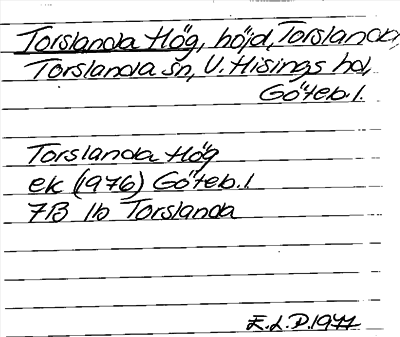 Torslanda Hög, höjd, Torslanda,
Torslanda sn, V. Hisings hd,
Göteb.l.
Torslanda Hög
ek (1976) Göteb.l.
7B 1b Torslanda
E.L.D.1977